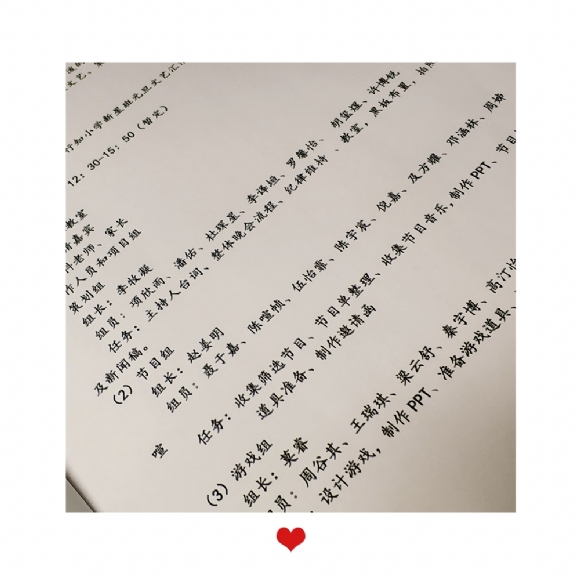 行知小学新星班元旦文艺汇
12：30-15：50（暂定）
教室
家长
作人员和项目组
策划组
组长：李牧凝
组员：项欣雨、潘佑、杜珲星、李泽垣、罗馨怡、胡玺瑾、许博悦
任务：主持人台词、整体晚会流程、纪律维持、教室，黑板布置，拍
及新闻稿。
（2）节目组
组长：赵姜明
组员：聂于嘉、陈喧帧、伍怡霏、陈宇宸、倪嘉、及方耀、邓涵林、周
喧
任务：收集筛选节目、节目单整理、收集节目音乐，制作PPT、节目
道具准备、制作邀请函
（3）游戏组
组长：莫睿
员：周谷其、王瑞琪、梁云舒、秦宇博、高汀
：设计游戏，制作PPT、准备游戏道具、